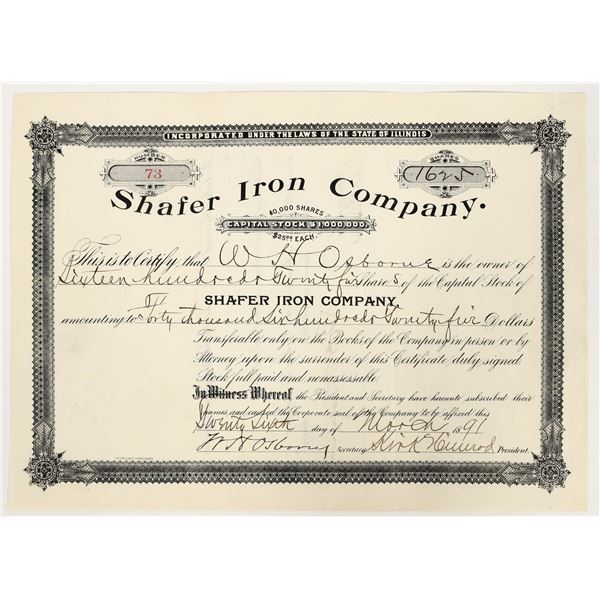 INCORPORATED UNDER THE LAWS OF THE STATE OF ILLINOIS
NUMBER
73
SHARES
1625
Shafer Iron Company.
40,000 SHARES
CAPITAL STOCK $1,000,000.
$25.00 EACH.
This is to Certify, that W H Osborne is the owner of
Sixteen hundred & Twenty five Shares of the Capital Stock of
THE
SHAFER IRON COMPANY,
amounting to Forty thousand Six hundred & Twenty five Dollars
Transferable only on the Books of the Company in person or by
Attorney upon the surrender of this Certificate, duly signed.
Stock full paid and nonassessable.
In Witness Whereof, the President and Secretary have hereunto subscribed their
names and caused the Corporate seal of the Company to be affixed this
Twenty Sixth day of March 1891
W H Osborne Secretary. Kirk Himrod President.